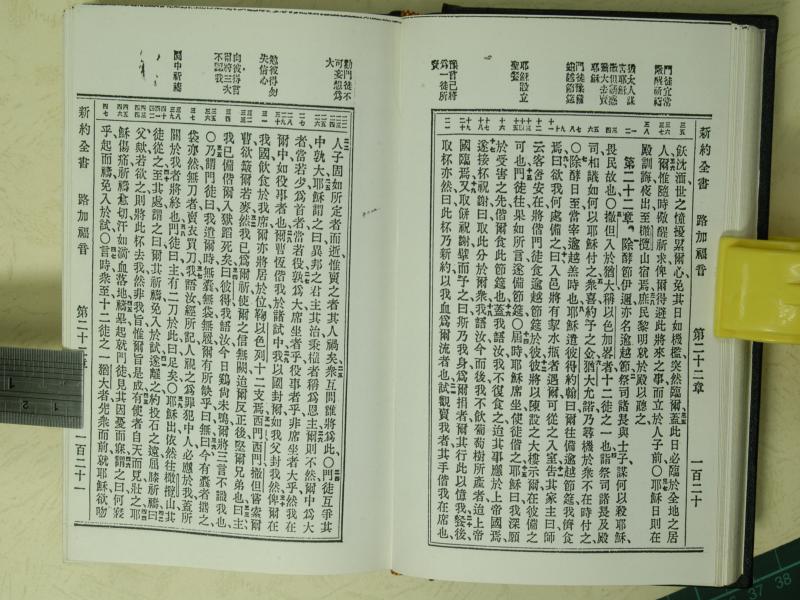 新約全書 路加福音 第二十二章 一百二十
門徒宜常儆醒祈禱
猶太人謀害耶穌
撒但誘惑猶大去賣耶穌
門徒豫備逾越節筵
耶穌設立聖餐
豫言己將爲一徒所賣
飫沈湎世之憧擾累爾心免其日如機檻突然臨爾蓋此日必臨於全地之居
人爾惟隨時儆醒祈求俾爾得避此將來之事而立於人子前〇耶穌日則在
殿訓誨夜出至橄欖山宿焉庶民黎明就於殿以聽之
第二十二章 除酵節伊邇亦名逾越節祭司諸長與士子謀何以殺耶穌
畏民故也〇撒但入於猶大稱以色加畧者十二徒之一也詣祭司諸長及殿
司相議如何以耶穌付之衆喜約予之金猶大允諾乃尋機於衆不在時付之
〇除酵日至當宰逾越羔時也耶穌遣彼得約翰曰爾往備逾越節筵我儕食
焉曰欲我何處備之曰入邑將有挈水瓶者遇爾可從之入室告其家主曰師
云客舍安在將偕門徒食逾越節筵於彼彼將以陳設之大樓示爾在彼備之
可也門徒往果如所言遂備節筵〇屆時耶穌席坐使徒偕之耶穌曰我深願
於受害之先偕爾食此節筵也蓋我語汝我不復食之迨其事應於上帝國焉
遂接杯祝謝曰取此分於爾衆我語汝今而後我不飲葡萄樹所產者迨上帝
國臨焉又取餅祝謝擘而予之曰斯乃我身爲爾捐者爾其行此以憶我餐後
取杯亦然曰此杯乃新約以我血爲爾流者也試觀賣我者其手偕我在席也
勸門徒不可妄想爲大
勉彼得勿失信心
向彼得言爾將三次不認我
園中祈禱
人子固如所定者而逝惟賣之者其人禍矣衆互問誰將爲此〇門徒互爭其
中孰大耶穌謂之曰異邦之君主其治秉權者稱爲恩主爾則不然爾中爲大
者當若少爲首者當若役孰爲大席坐者乎役事者乎非席坐者大乎然我在
爾中如役事者也爾曹恆偕我於諸試中我以國封爾如我父封我然俾爾在
我國飲食於我席爾亦將居於位鞫以色列十二支焉西門西門撒但嘗索爾
曹欲簸爾若麥然我已爲爾祈使爾之信無闕迨爾反正後堅爾兄弟也曰主
我已備偕爾入獄蹈死矣曰彼得我語汝今日鷄尚未鳴爾將三言不識我也
〇乃謂門徒曰我遣爾時無囊無袋無履爾有所缺乎曰無曰今有囊者攜之
袋亦然無刀者賣衣買刀我語汝經所記人視之爲罪犯中人必應於我蓋所
關於我者將終也門徒曰主有二刀於此曰足矣〇耶穌出依然往橄欖山其
徒從之至其處謂之曰爾其祈禱免入於試遂離之約投石之遠屈膝祈禱曰
父歟若欲之則將此杯去我然非我旨惟爾旨是成有使者自天而見壯之耶
穌傷痛祈禱愈切汗如滴血落地禱畢起就門徒見其因憂而寐謂之曰何寢
乎起而禱免入於試〇言時衆至十二徒之一猶大者先衆而前就耶穌欲吻
新約全書 路加福音 第二十二章 一百二十一
37 38